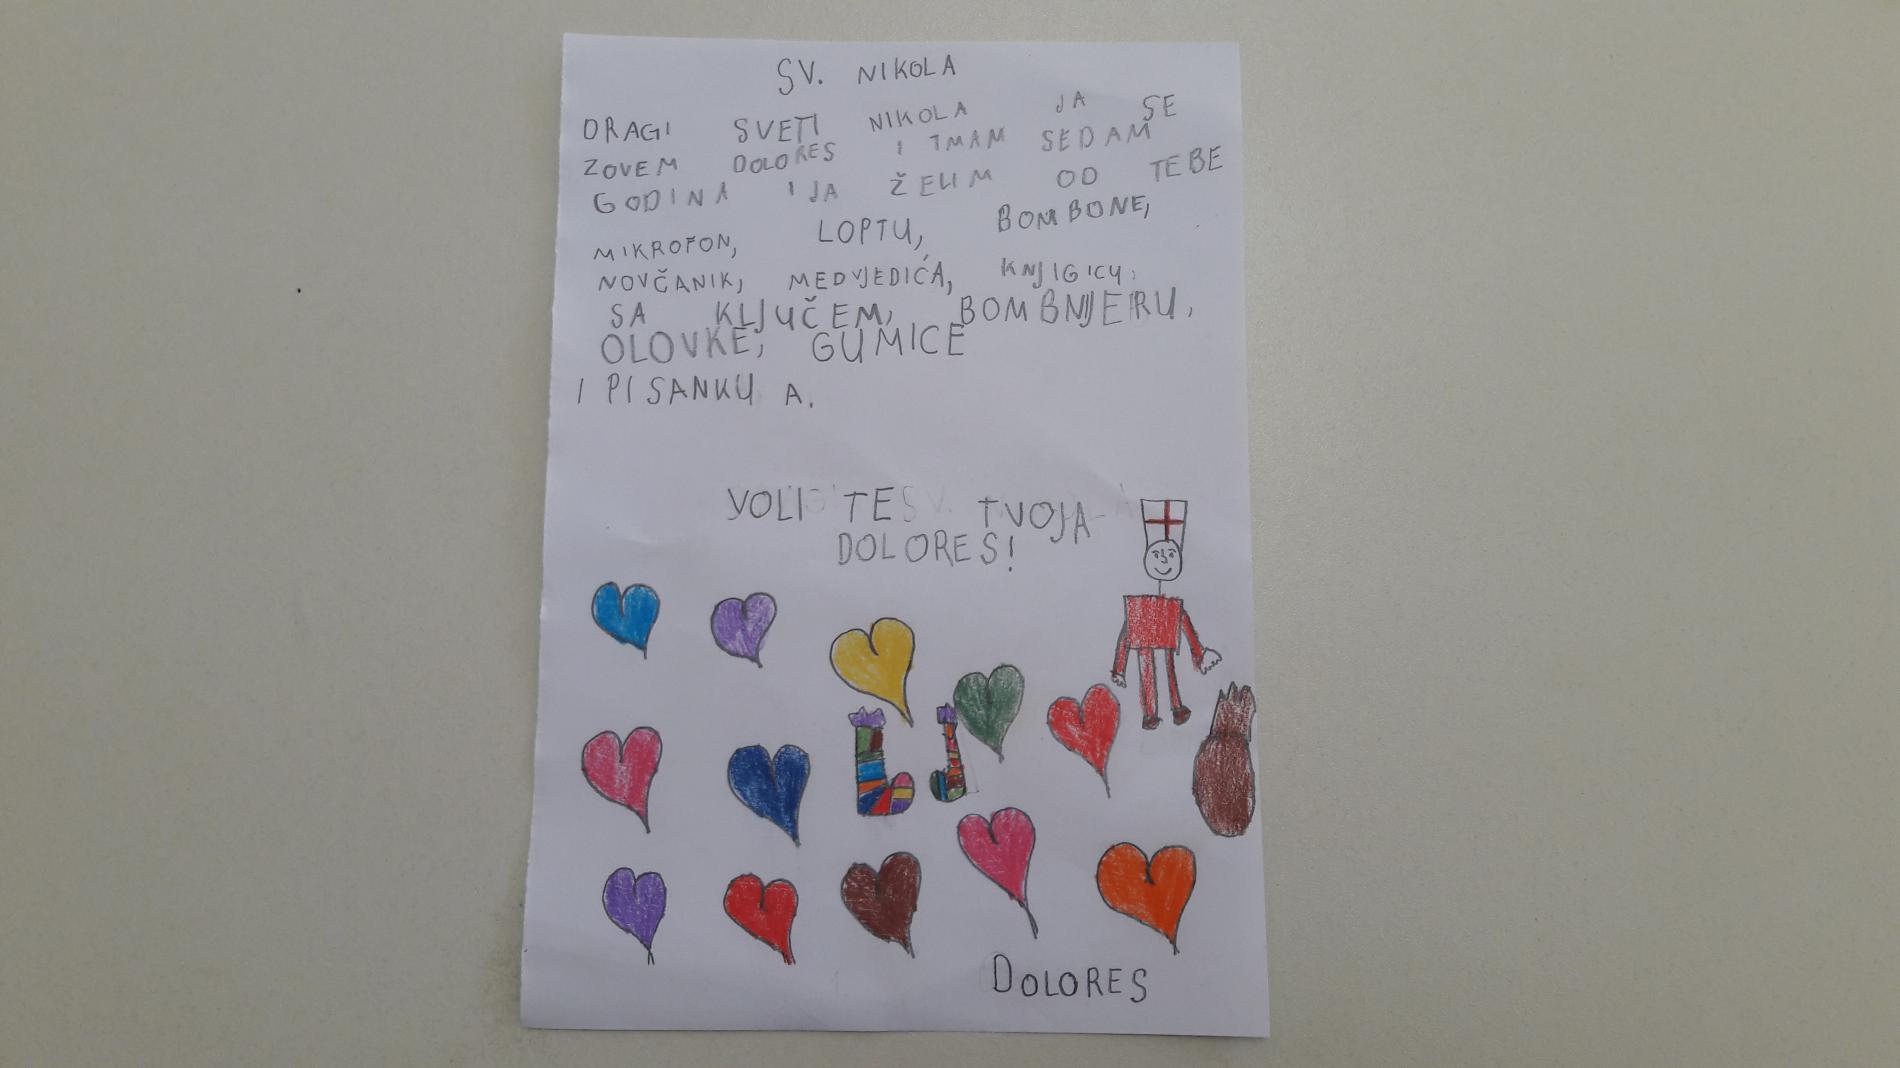 SV. NIKOLA
DRAGI SVETI NIKOLA JA SE
ZOVEM DOLORES I IMAM SEDAM
GODINA I JA ŽELIM OD TEBE
MIKROFON, LOPTU, BOMBONE,
NOVČANIK, MEDVJEDIĆA, KNJIGICU
SA KLJUČEM, BOMBNJERU,
OLOVKE, GUMICE
I PISANKU A.
VOLI TE TVOJA
DOLORES!
DOLORES